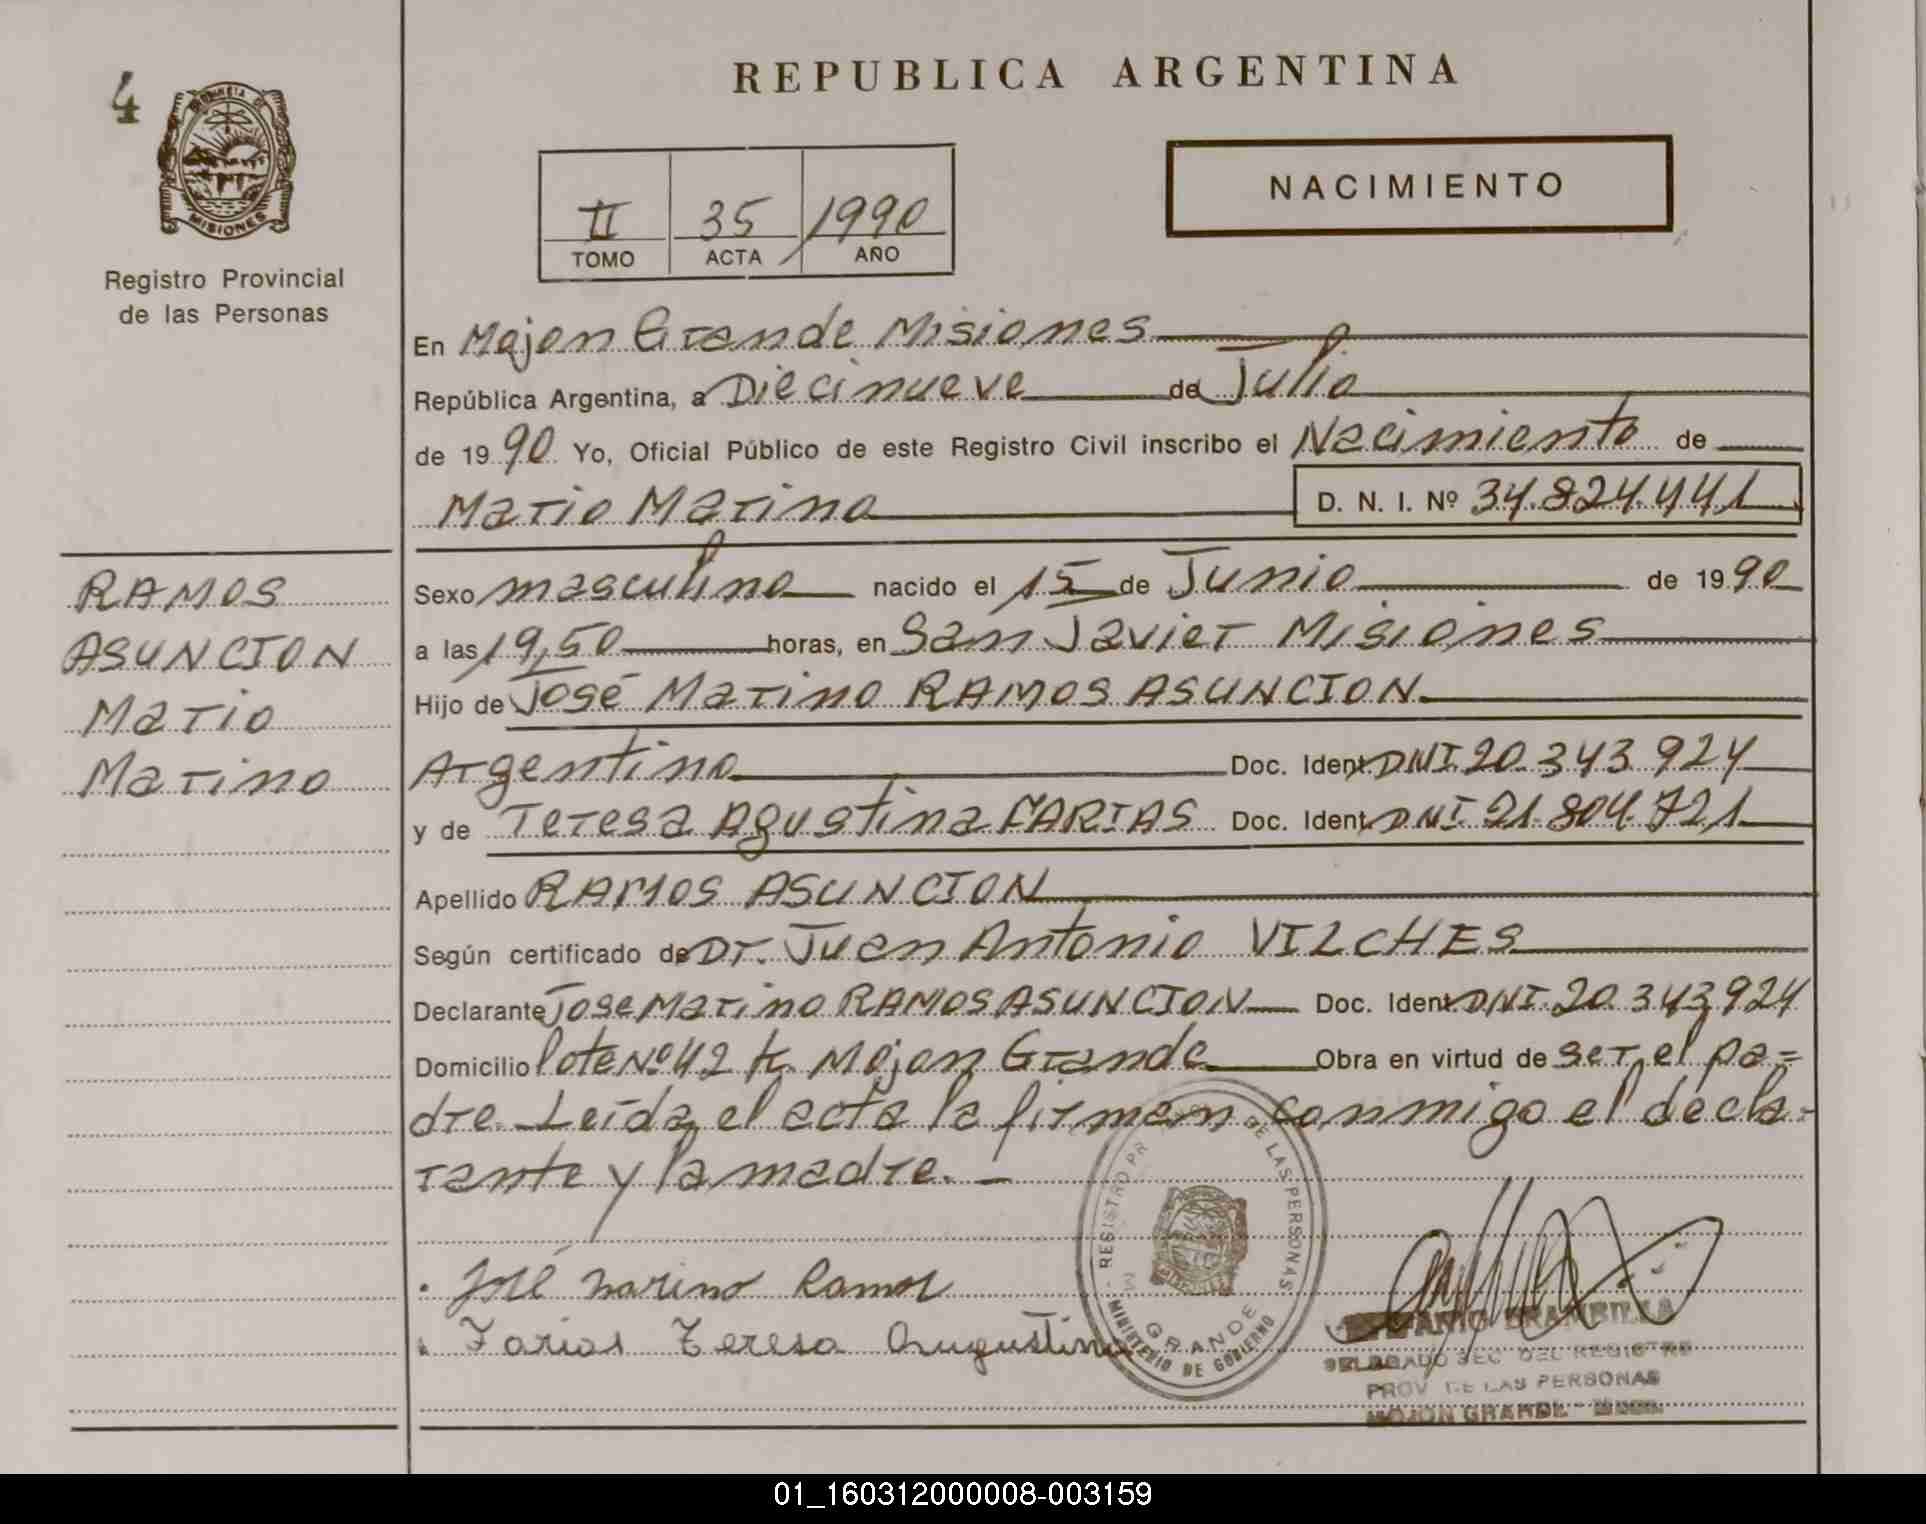 4
PROVINCIA DE
MISIONES
Registro Provincial
de las Personas
REPUBLICA ARGENTINA
II 35 1990
TOMO ACTA AÑO
NACIMIENTO
En Mojon Grande Misiones
República Argentina, a Diecinueve de Julio
de 1990 Yo, Oficial Público de este Registro Civil inscribo el Nacimiento de
Mario Marino D. N. I. Nº 34.824.441
RAMOS
ASUNCION
Mario
Marino
Sexo masculino nacido el 15 de Junio de 1990
a las 19,50 horas, en San Javier Misiones
Hijo de José Marino RAMOS ASUNCION
Argentino Doc. Ident. DNI 20.343.924
y de Teresa Agustina FARIAS Doc. Ident. DNI 21.804.721
Apellido RAMOS ASUNCION
Según certificado de Dr. Juan Antonio VILCHES
Declarante Jose Marino RAMOS ASUNCION Doc. Ident. DNI. 20.343,924
Domicilio lote Nº 42 k. Mojon Grande Obra en virtud de ser el pa=
dre. Leída el acta la firman conmigo el decla-
rante y la madre. -
José Marino Ramos
Farias Teresa Augustina
REGISTRO PR DE LAS PERSONAS
GRANDE
MINISTERIO DE GOBIERNO
BRAMBILLA
DELEGADO SEC DEL REGISTRO
PROV DE LAS PERSONAS
MOJON GRANDE
01_160312000008-003159